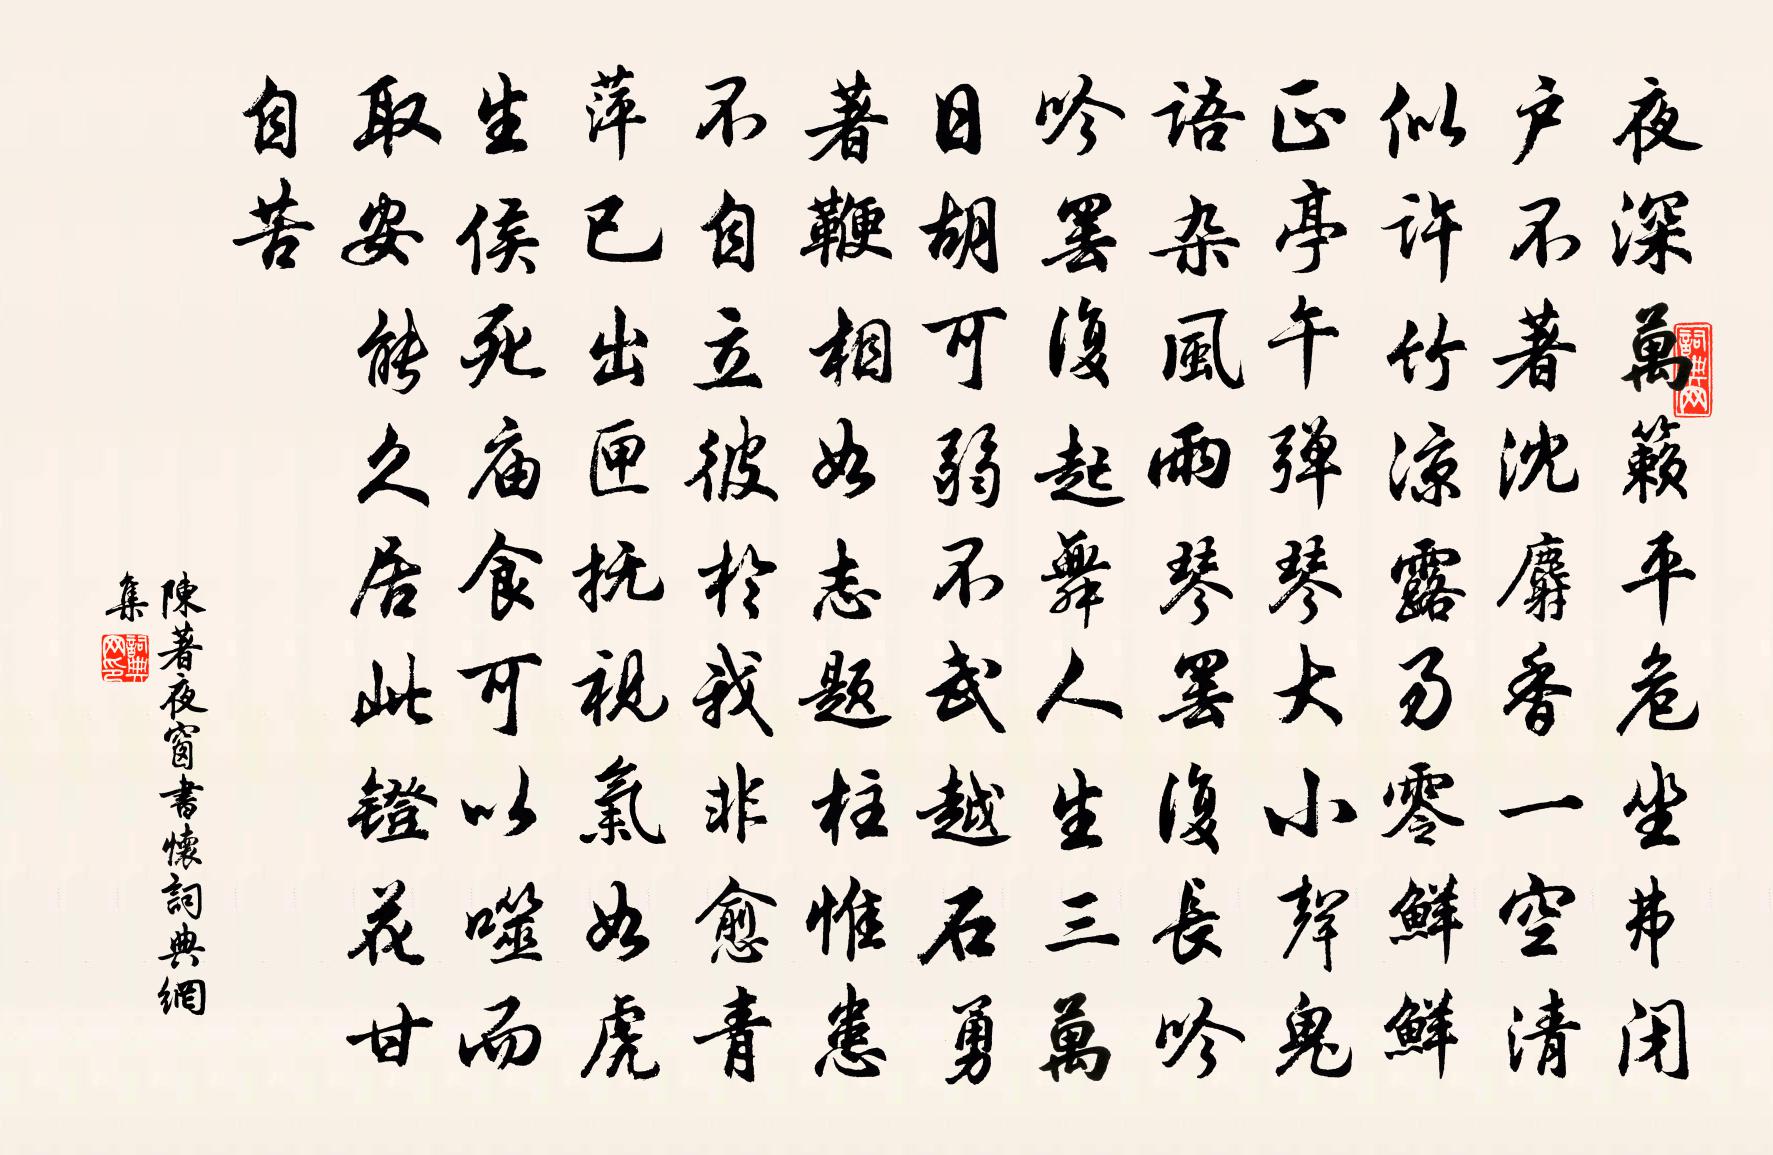 夜深萬籟平危坐弗闭
户不著沈麝香一空清
似许竹凉露乃零鲜鲜
正亭午弹琴大小聲鬼
语杂風雨琴罢復長吟
吟罢復起舞人生三萬
日胡可弱不武越石勇
著鞭相如志题柱惟患
不自立彼於我非愈青
萍已出匣抚視氣如虎
生侯死庙食可以噬而
取安能久居此镫花甘
自苦
陳著夜窗書懷詞典網
集
詞典网
詞典网印